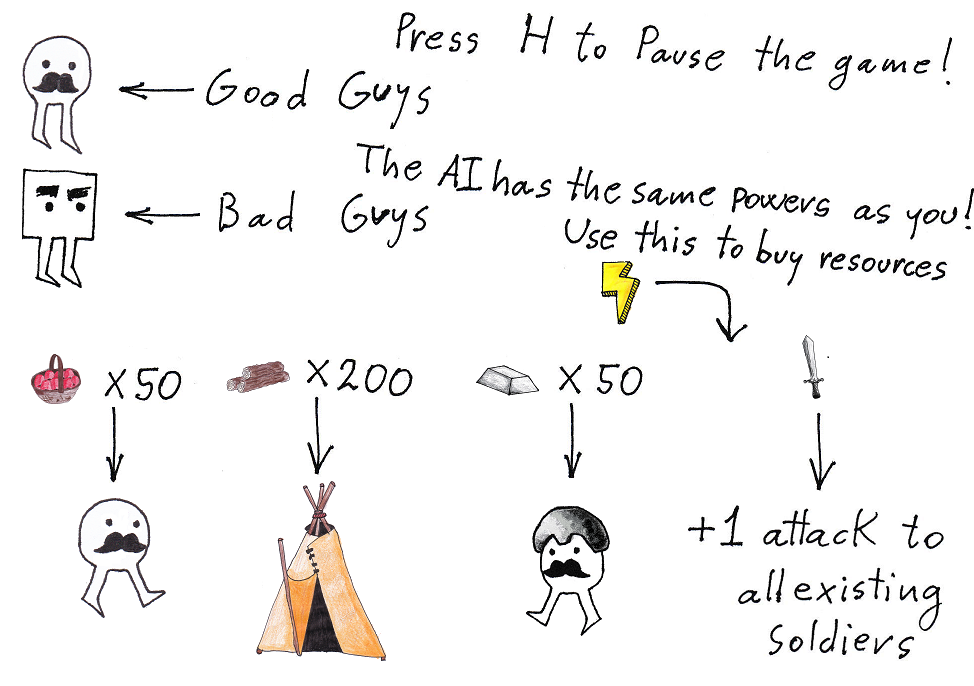 Press H to Pause the game!
Good Guys
The AI has the same powers as you!
Bad Guys
Use this to buy resources
x50
x200
x50
+1 attack to
all existing
soldiers